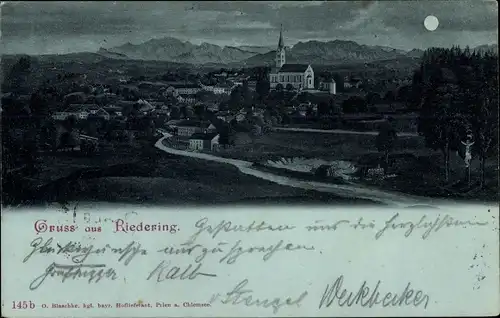 Gruss aus Riedering. Gestatten uns die herzlichsten
Glückwünsche auszusprechen
Kalb
Stengel Werkherker
145b O. Blaschke, kgl. bayr. Hoflieferant, Prien a. Chiemsee.